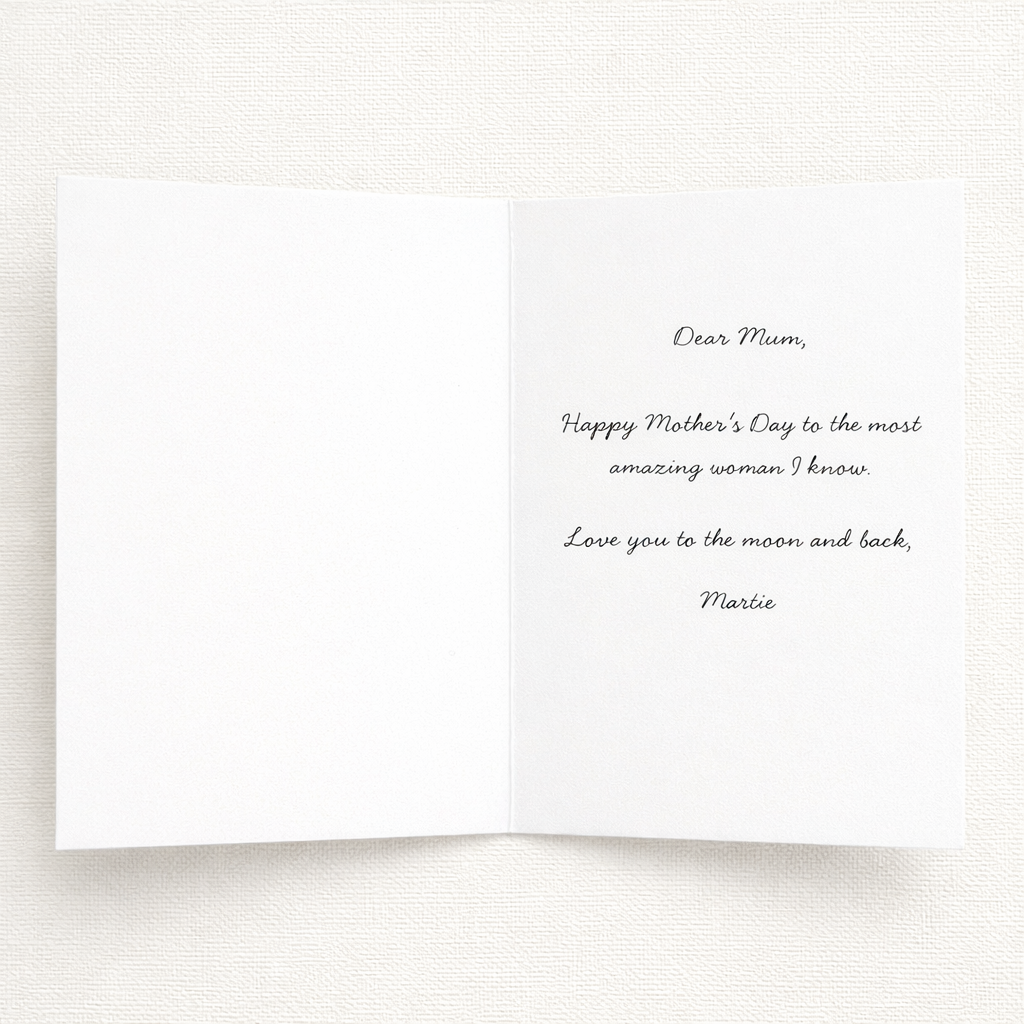 Dear Mum,
Happy Mother's Day to the most
amazing woman I know.
Love you to the moon and back,
Martie